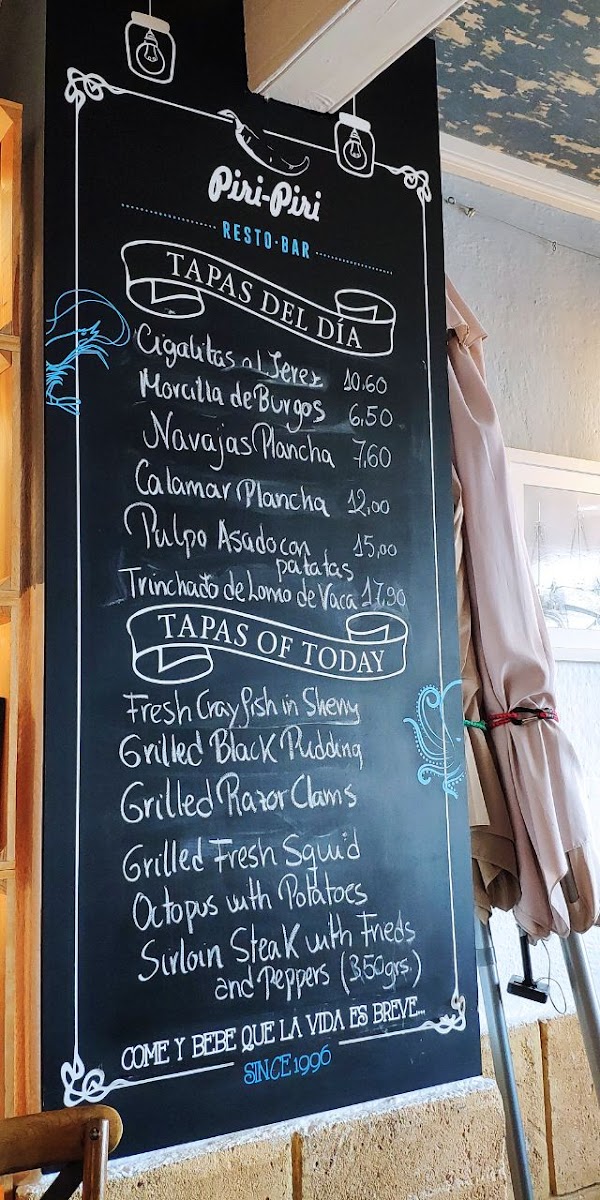 Piri-Piri
RESTO-BAR
TAPAS DEL DÍA
Cigalitas al Jerez 10.60
Morcilla de Burgos 6,50
Navajas Plancha 7,60
Calamar Plancha 12,00
Pulpo Asado con 15,00
patatas
Trinchado de Lomo de Vaca 17,90
TAPAS OF TODAY
Fresh Crayfish in Sherry
Grilled Black Pudding
Grilled Razor Clams
Grilled Fresh Squid
Octopus with Potatoes
Sirloin Steak with Frieds
and Peppers (350grs.)
COME Y BEBE QUE LA VIDA ES BREVE...
SINCE 1996